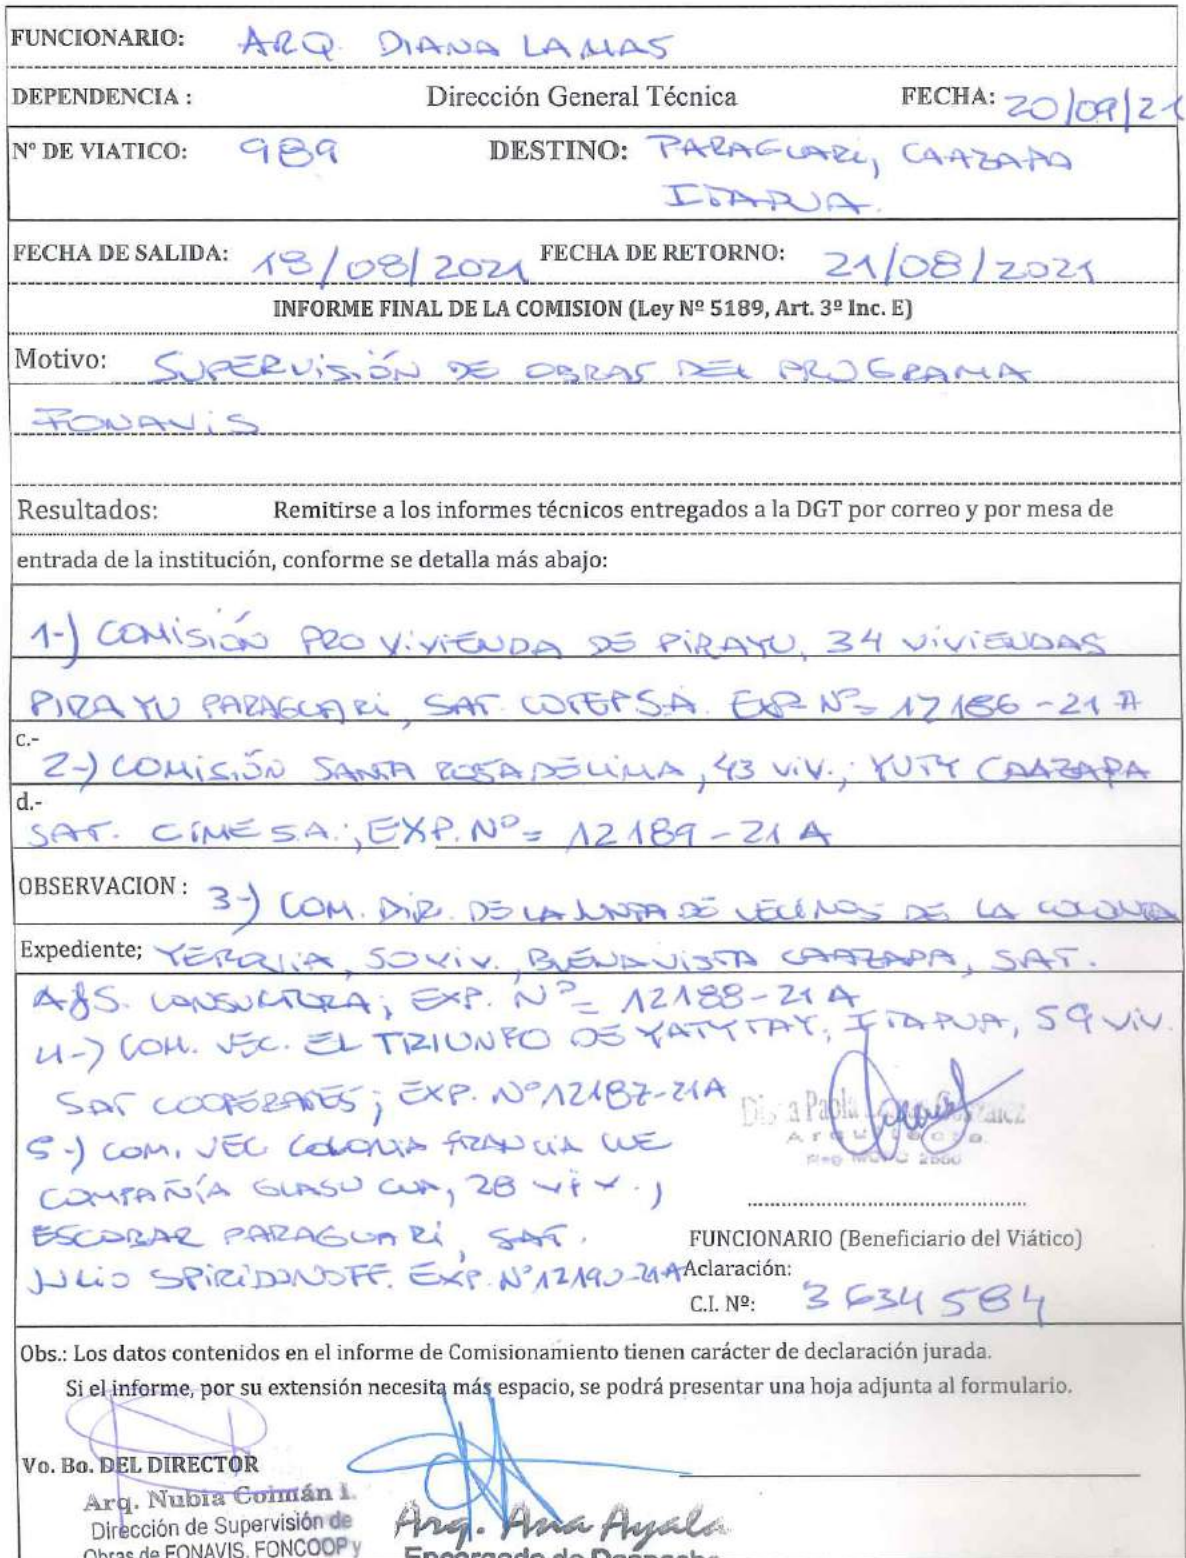 FUNCIONARIO: ARQ. DIANA LAMAS
DEPENDENCIA : Dirección General Técnica FECHA: 20/09/21
Nº DE VIATICO: 989 DESTINO: PARAGUARI, CAAZAPA
ITAPUA.
FECHA DE SALIDA: 18/08/2021 FECHA DE RETORNO: 21/08/2021
INFORME FINAL DE LA COMISION (Ley Nº 5189, Art. 3º Inc. E)
Motivo: SUPERVISIÓN DE OBRAS DEL PROGRAMA
FONAVIS
Resultados: Remitirse a los informes técnicos entregados a la DGT por correo y por mesa de
entrada de la institución, conforme se detalla más abajo:
1-) COMISIÓN PRO VIVIENDA DE PIRAYU, 34 VIVIENDAS
PIRAYU PARAGUARI, SAT. COTEPSA. EXP Nº= 12186-21 A
c.-
2-) COMISIÓN SANTA ROSA DE LIMA, 43 VIV.; YUTY CAAZAPA
d.-
SAT. CIME S.A.; EXP. Nº= 12189-21 A
OBSERVACION : 3-) COM. DIR. DE LA JUNTA DE VECINOS DE LA COLONIA
Expediente; 50 VIV., BUENAVISTA CAAZAPA, SAT.
A&S. CONSULTORA; EXP. Nº= 12188-21 A
4-) COM. VEC. EL TRIUNFO DE YATYTAY, ITAPUA, 59 VIV.
SAT ; EXP. Nº 12187-21A
5-) COM. VEC COLONIA FRANCIA
COMPAÑÍA GUASU CUA, 28 VIV.,
ESCOBAR PARAGUARÍ, SAT.
JULIO SPIRIDONOFF. EXP. Nº 12190-21A
Arquitecta
FUNCIONARIO (Beneficiario del Viático)
Aclaración:
C.I. Nº: 3634584
Obs.: Los datos contenidos en el informe de Comisionamiento tienen carácter de declaración jurada.
Si el informe, por su extensión necesita más espacio, se podrá presentar una hoja adjunta al formulario.
Vo. Bo. DEL DIRECTOR
Arq. Nubia Colmán I.
Dirección de Supervisión de
Obras de FONAVIS, FONCOOP y
Arq. Ana Ayala
Encargada de Despacho